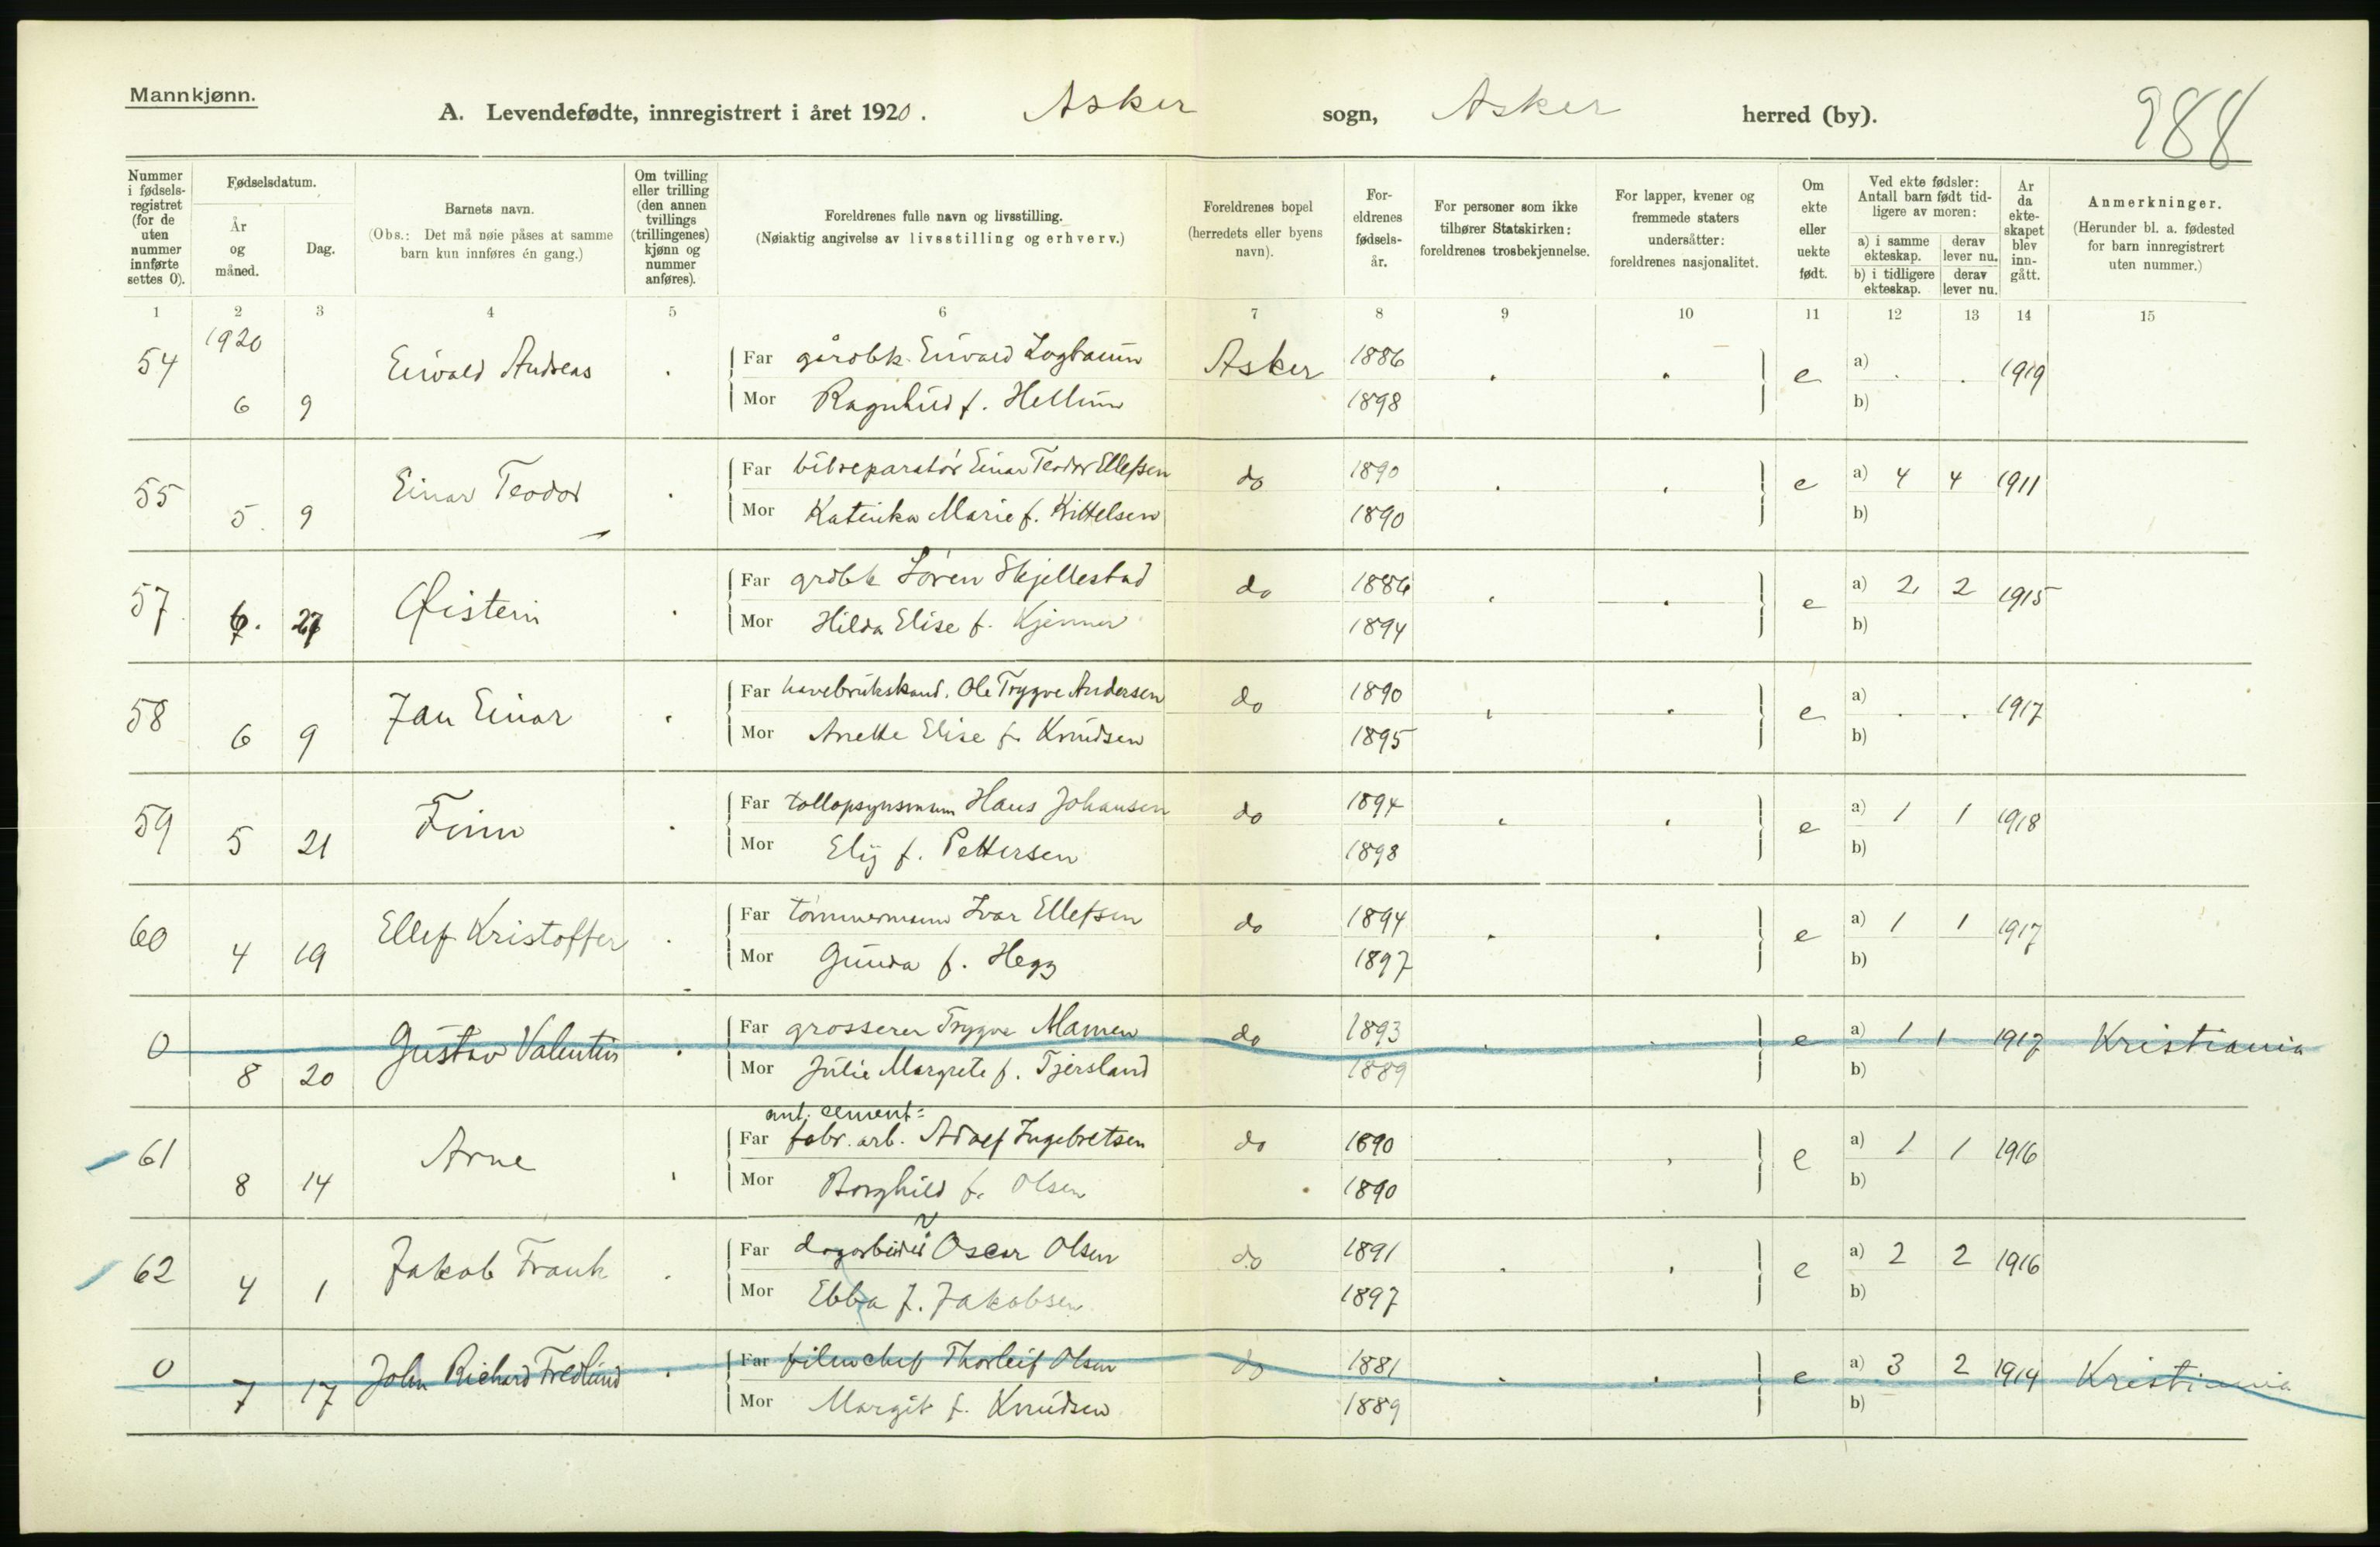 Mannkjønn.
A. Levendefødte, innregistrert i året 1920. Asker sogn, Asker herred (by). 988
Nummer i fødselsregistret (for de uten nummer innførte settes 0).
Fødselsdatum.
År og måned.
Dag.
Barnets navn.
(Obs.: Det må nøie påses at samme barn kun innføres én gang.)
Om tvilling eller trilling (den annen tvillings (trillingenes) kjønn og nummer anføres).
Foreldrenes fulle navn og livsstilling.
(Nøiaktig angivelse av livsstilling og erhverv.)
Foreldrenes bopel (herredets eller byens navn).
For-eldrenes fødsels-år.
For personer som ikke tilhører Statskirken: foreldrenes trosbekjennelse.
For lapper, kvener og fremmede staters undersåtter: foreldrenes nasjonalitet.
Om ekte eller uekte født.
Ved ekte fødsler: Antall barn født tid-ligere av moren:
a) i samme ekteskap. derav lever nu.
b) i tidligere ekteskap. derav lever nu.
Ar da ekte-skapet blev inn-gått.
Anmerkninger.
(Herunder bl. a. fødested for barn innregistrert uten nummer.)
1 2 3 4 5 6 7 8 9 10 11 12 13 14 15
1920
54 6 9 Eivald Andreas . Far gårdbk. Eivald Logbaum Asker 1886 . . e a) . . 1919
Mor Ragnhild f. Hellum 1898 b)
55 5. 9 Einar Teodor . Far bilreparatør Einar Teodor Ellefsen do 1890 . . e a) 4 4 1911
Mor Katinka Marie f. Kittelsen 1890 b)
57. 6. 27 Øistein . Far grdbk Søren Skjellestad do 1886 . . e a) 2 2 1915
Mor Hilda Elise f. Kjenner 1894 b)
58 6 9 Jan Einar . Far havebrukskand. Ole Trygve Andersen do 1890 . . e a) . . 1917
Mor Anette Elise f. Knudsen 1895 b)
59 5 21 Finn . Far tollopsynsmann Hans Johansen do 1894 . . e a) 1 1 1918
Mor Elij f. Pettersen 1898 b)
60 4 19 Ellef Kristoffer . Far tømmermann Ivar Ellefsen do 1894 . . e a) 1 1 1917
Mor Gunda f. Hegg 1897 b)
0 8 20 Gustav Valentin . Far grosserer Trygve Mamen do 1893 . . e a) 1 1 1917 Kristiania
Mor Julie Margrete f. Tjersland 1889 b)
cement=
61 8 14 Arne . Far fabr. arb. Adolf Ingebretsen do 1890 . . e a) 1 1 1916
Mor Borghild f. Olsen 1890 b)
62 4 1 Jakob Frank . Far dagarbeider Oscar Olsen do 1891 . . e a) 2 2 1916
Mor Ebba f. Jakobsen 1897 b)
0 7 17 John Richard Fredlund . Far filmchef Thorleif Olsen do 1881 . . e a) 3 2 1914 Kristiania
Mor Margit f. Knudsen 1889 b)